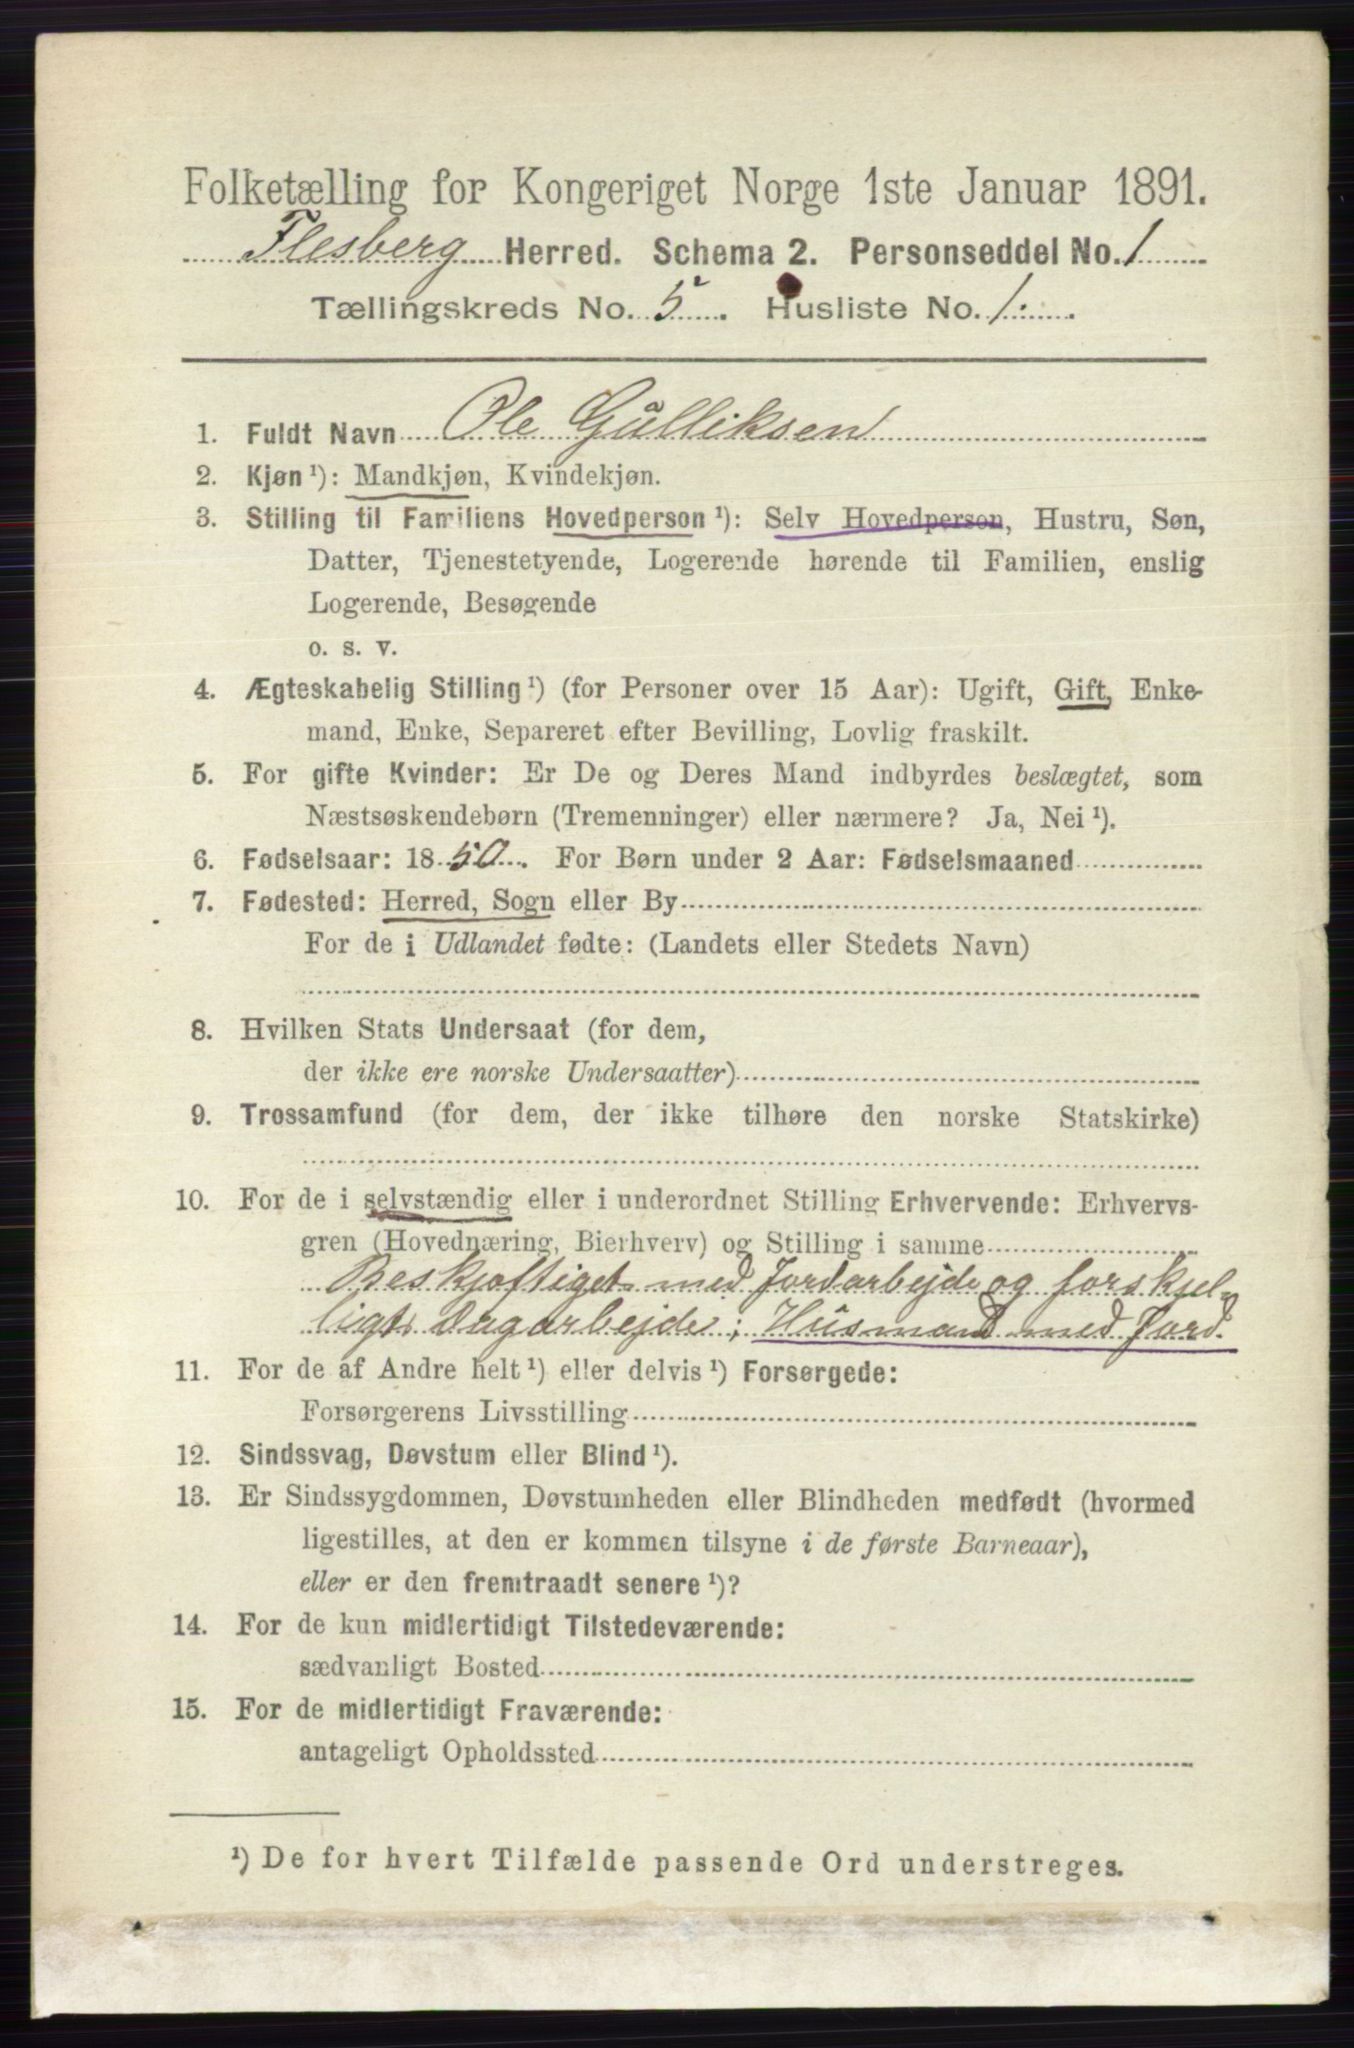 Folketælling for Kongeriget Norge 1ste Januar 1891.
Flesberg Herred. Schema 2. Personseddel No. 1
Tællingskreds No. 5. Husliste No. 1.
1. Fuldt Navn Ole Gulliksen
2. Kjøn ¹): Mandkjøn, Kvindekjøn.
3. Stilling til Familiens Hovedperson ¹): Selv Hovedperson, Hustru, Søn,
Datter, Tjenestetyende, Logerende hørende til Familien, enslig
Logerende, Besøgende
o. s. v.
4. Ægteskabelig Stilling ¹) (for Personer over 15 Aar): Ugift, Gift, Enke-
mand, Enke, Separeret efter Bevilling, Lovlig fraskilt.
5. For gifte Kvinder: Er De og Deres Mand indbyrdes beslægtet, som
Næstsøskendebørn (Tremenninger) eller nærmere? Ja, Nei ¹).
6. Fødselsaar: 1850. For Børn under 2 Aar: Fødselsmaaned
7. Fødested: Herred, Sogn eller By
For de i Udlandet fødte: (Landets eller Stedets Navn)
8. Hvilken Stats Undersaat (for dem,
der ikke ere norske Undersaatter)
9. Trossamfund (for dem, der ikke tilhøre den norske Statskirke)
10. For de i selvstændig eller i underordnet Stilling Erhvervende: Erhvervs-
gren (Hovednæring, Bierhverv) og Stilling i samme
Beskjæftiget med Jordarbejde og forskjel-
ligt Dagarbejde; Husmand med Jord.
11. For de af Andre helt ¹) eller delvis ¹) Forsørgede:
Forsørgerens Livsstilling
12. Sindssvag, Døvstum eller Blind ¹).
13. Er Sindssygdommen, Døvstumheden eller Blindheden medfødt (hvormed
ligestilles, at den er kommen tilsyne i de første Barneaar),
eller er den fremtraadt senere ¹)?
14. For de kun midlertidigt Tilstedeværende:
sædvanligt Bosted
15. For de midlertidigt Fraværende:
antageligt Opholdssted
¹) De for hvert Tilfælde passende Ord understreges.